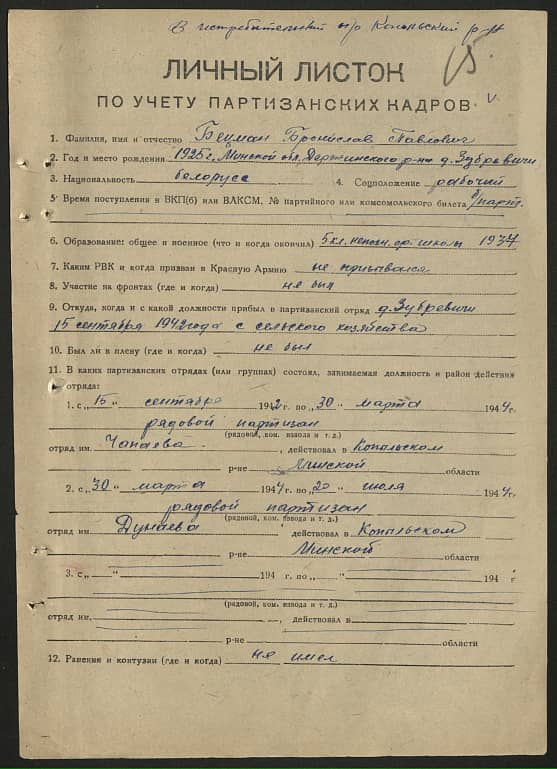 В истребительный п/о Копыльский р-н
ЛИЧНЫЙ ЛИСТОК
ПО УЧЕТУ ПАРТИЗАНСКИХ КАДРОВ.
1. Фамилия, имя и отчество Бецман Бронислав Павлович
2. Год и место рождения 1925 г. Минской обл, Дзержинского р-на д. Зубревичи
3. Национальность белорусс 4. Соцположение рабочий
5. Время поступления в ВКП(б) или ВЛКСМ, № партийного или комсомольского билета б/парт.
6. Образование: общее и военное (что и когда окончил) 5 кл. непол. ср. школы 1937
7. Каким РВК и когда призван в Красную Армию не призывался
8. Участие на фронтах (где и когда) не был
9. Откуда, когда и с какой должности прибыл в партизанский отряд д. Зубревичи
15 сентября 1942 года с сельского хозяйства
10. Был ли в плену (где и когда) не был
11. В каких партизанских отрядах (или группах) состоял, занимаемая должность и район действия
отряда:
1. с „15" сентября 1942 г. по „30" марта 1944 г.
рядовой партизан
(рядовой, ком. взвода и т. д.)
отряд им. Чапаева, действовал в Копыльском
р-не Минской области
2. с „30" марта 1944 г. по „20" июля 1944 г.
рядовой партизан
(рядовой, ком. взвода и т. д.)
отряд им. Дунаева действовал в Копыльском
р-не Минской области
3. с „ " 194 г. по „ " 194 г.
(рядовой, ком. взвода и т. д.)
отряд им. , действовал в
р-не области
12. Ранения и контузии (где и когда) не имел